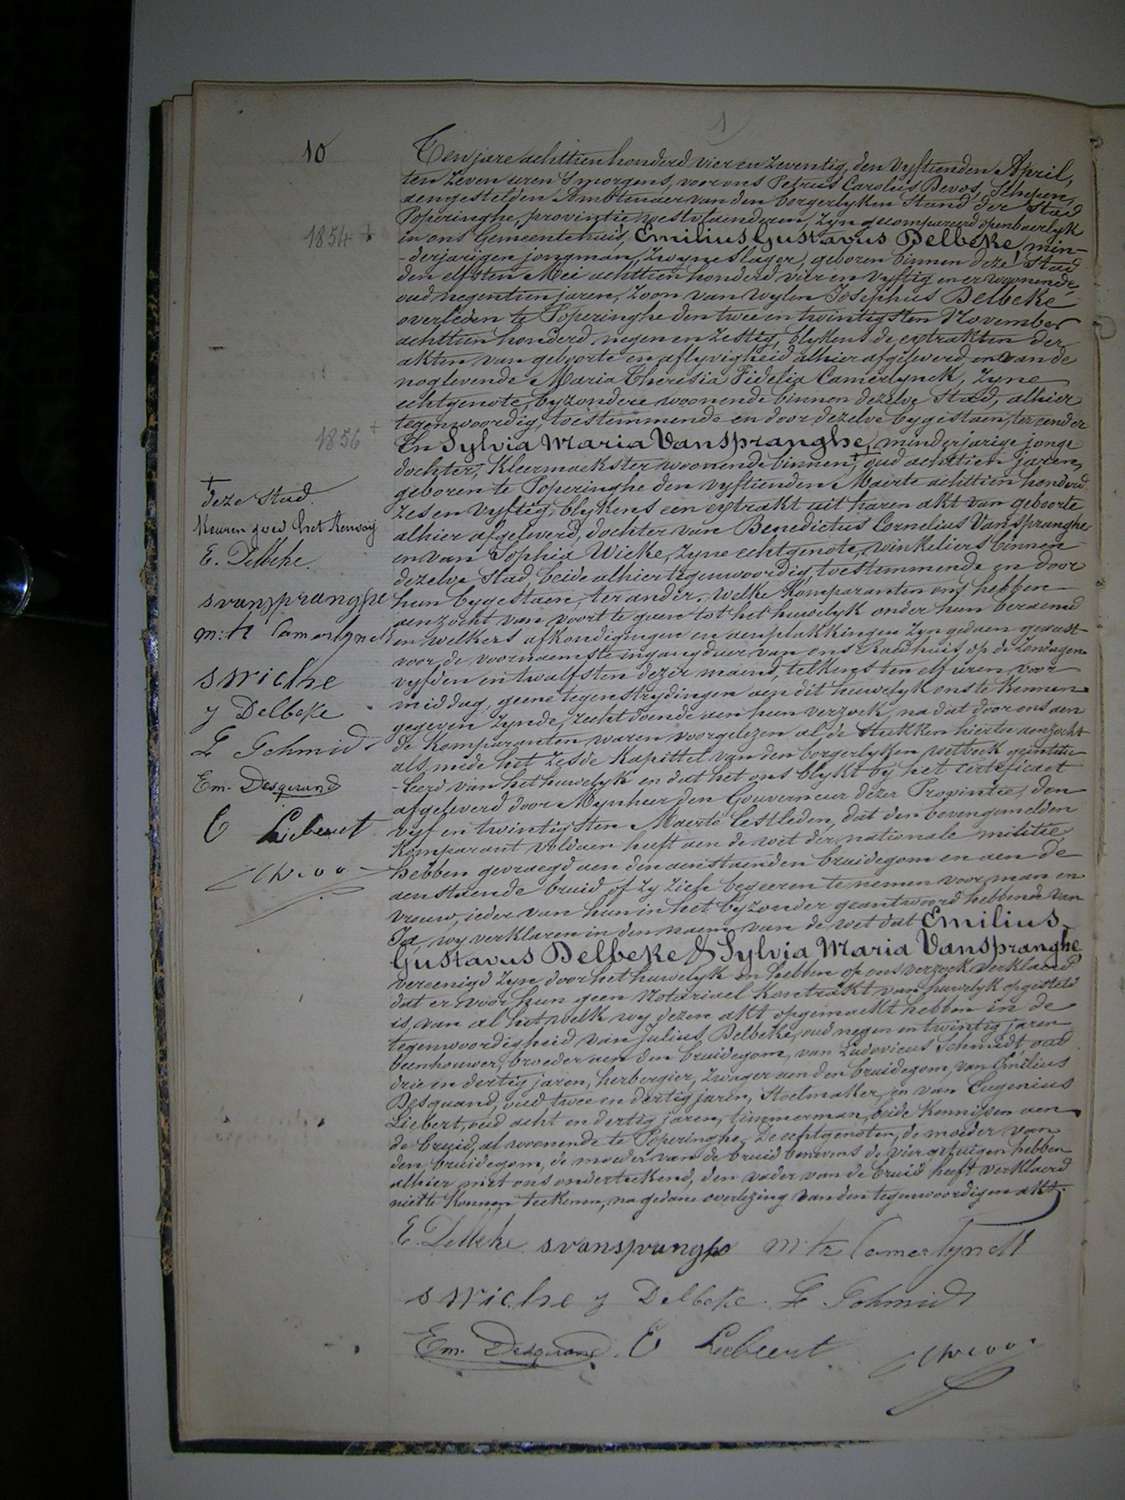 10
Ten jare achttien honderd vier en zeventig, den vyftienden April,
ten zeven uren 's morgens, voor ons Petrus Carolus Devos, Schepen,
aengestelden Ambtenaer van den borgerlyken Stand der Stad
Poperinghe, provintie westvlaenderen, zyn gecompareerd openbaerlyk
1854 +
in ons Gemeentehuis, Emilius Gustavus Delbeke, min-
-derjarigen jongman, zwyneslager, geboren binnen deze Stad
den elfsten Mei achttien honderd vier en vyftig en er woonende,
oud negentien jaren, zoon van wylen Josephus Delbeke
overleden te Poperinghe den twee en twintigsten November
achttien honderd negen en zestig, blykens de extrakten der
akten van geboorte en aflyvigheid alhier afgeleverd en van de
nog levende Maria Theresia Fidelia Camerlynck, zyne
echtgenote, byzondere woonende binnen dezelve Stad, alhier
tegenwoordig, toestemmende en door dezelve bygestaen, ter eender
1856 +
En Sylvia Maria Vanspranghe, minderjarige jonge
dochter, kleermaekster woonende binnen + oud achttien jaren,
geboren te Poperinghe den vyftienden Maerte achttien honderd
zes en vyftig, blykens een extrakt uit haren akt van geboorte
alhier afgeleverd, dochter van Benedictus Cornelius Vanspranghe
en van Sophia Wicke, zyne echtgenote, winkeliers binnen
dezelve stad, beide alhier tegenwoordig, toestemmende en door
hun bygestaen, ter ander. welke komparanten ons hebben
aenzocht van voort te gaen tot het huwelyk onder hun beraemd
en welkers afkondigingen en aenplakkingen zyn gedaen geweest
voor de voornaemste ingangdeur van ons Raedhuis, op de zondagen
vyfden en twaelfsten dezer maend, telkens ten elf uren voor
middag, geene tegenstrydingen aen dit huwelyk ons te kennen
gegeven zynde, recht doende aen hun verzoek, na dat door ons aen
de komparanten waren voorgelezen al de stukken hiertoe aenzocht
als mede het zesde kapittel van den borgerlyken wetboek geintitu-
-leerd van het huwelyk en dat het ons blykt by het certificaet
afgeleverd door Mynheer den Gouverneur dezer Provintie, den
vyf en twintigsten Maerte lestleden, dat den bovengemelden
Komparant voldaen heeft aen de wet der nationale militie,
hebben gevraegd aen den aenstaenden bruidegom en aen de
aenstaende bruid, of zy zich begeeren te nemen voor man en
vrouw, ieder van hun in het byzonder geantwoord hebbende van
Ja, wy verklaren in den naem van de wet dat Emilius
Gustavus Delbeke & Sylvia Maria Vanspranghe
vereenigd zyn door het huwelyk en hebben op ons verzoek verklaerd
dat er voor hun geen Notariael kontrakt van huwelyk opgesteld
is, van al het welk wy dezen akt opgemaekt hebben in de
tegenwoordigheid van Julius Delbeke, oud negen en twintig jaren
beenhouwer, broeder aen den bruidegom, van Ludovicus Schmidt oud
drie en dertig jaren, herbergier, zwager aen den bruidegom, van Emilius
Desquand, oud twee en dertig jaren, Stoelmaker, en van Eugenius
Liebert, oud acht en dertig jaren, timmerman, beide kennissen aen
de bruid, al woonende te Poperinghe. De echtgenoten, de moeder van
den bruidegom, de moeder van de bruid benevens de vier getuigen hebben
alhier met ons onderteekend, den vader van de bruid heeft verklaerd
niet te konnen teekenen, na gedane overlezing van den tegenwoordigen akt.
+ deze Stad.
E. Delbeke.
svanspranghe
m: th Camerlynck
s wicke
j Delbeke
L Schmidt
Em. Desquand
E Liebert
E. Delbeke svanspranghe m: th Camerlynck
s wicke j Delbeke. L Schmidt
Em. Desquand. E Liebert